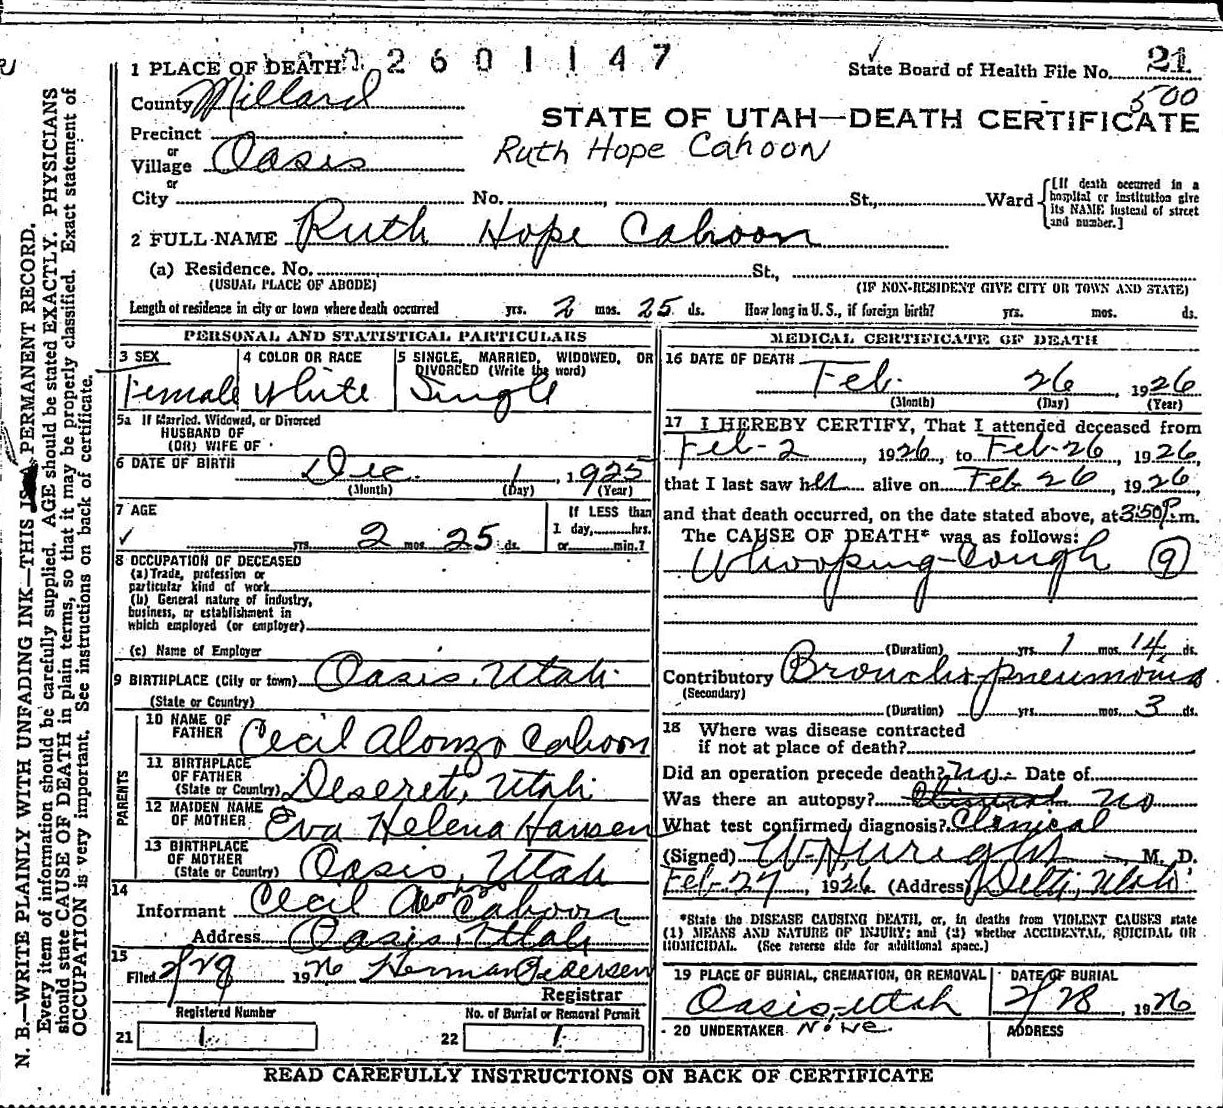 2601147
1 PLACE OF DEATH
State Board of Health File No. 21
500
County Millard
STATE OF UTAH—DEATH CERTIFICATE
Precinct
or
Village Oasis
Ruth Hope Cahoon
or
City No. St., Ward
[If death occurred in a
hospital or institution give
its NAME instead of street
and number.]
2 FULL NAME Ruth Hope Cahoon
(a) Residence. No. St.,
(USUAL PLACE OF ABODE) (IF NON-RESIDENT GIVE CITY OR TOWN AND STATE)
Length of residence in city or town where death occurred yrs. 2 mos. 25 ds. How long in U. S., if foreign birth? yrs. mos. ds.
PERSONAL AND STATISTICAL PARTICULARS
3 SEX
Female
4 COLOR OR RACE
White
5 SINGLE, MARRIED, WIDOWED, OR
DIVORCED (Write the word)
Single
5a If Married, Widowed, or Divorced
HUSBAND OF
(OR) WIFE OF
6 DATE OF BIRTH Dec. 1, 1925
(Month) (Day) (Year)
7 AGE
yrs. 2 mos. 25 ds.
If LESS than
1 day, hrs.
or min.?
8 OCCUPATION OF DECEASED
(a) Trade, profession or
particular kind of work
(b) General nature of industry,
business, or establishment in
which employed (or employer)
(c) Name of Employer
9 BIRTHPLACE (City or town) Oasis, Utah
(State or Country)
PARENTS
10 NAME OF
FATHER Cecil Alonzo Cahoon
11 BIRTHPLACE
OF FATHER
(State or Country) Deseret, Utah
12 MAIDEN NAME
OF MOTHER Eva Helena Hansen
13 BIRTHPLACE
OF MOTHER
(State or Country) Oasis, Utah
14
Informant Cecil Alonzo Cahoon
Address Oasis, Utah
15
Filed 2/28 1926 Herman Pedersen
Registrar
Registered Number
21 1
No. of Burial or Removal Permit
22 1
MEDICAL CERTIFICATE OF DEATH
16 DATE OF DEATH Feb. 26 1926
(Month) (Day) (Year)
17 I HEREBY CERTIFY, That I attended deceased from
Feb-2, 1926, to Feb-26, 1926,
that I last saw her alive on Feb 26, 1926,
and that death occurred, on the date stated above, at 3:50P.m.
The CAUSE OF DEATH* was as follows:
Whooping-Cough 9
(Duration) yrs. 1 mos. 14 ds.
Contributory Broncho-pneumonia
(Secondary)
(Duration) yrs. mos. 3 ds.
18 Where was disease contracted
if not at place of death?
Did an operation precede death? No - Date of
Was there an autopsy? No
What test confirmed diagnosis? Clinical
(Signed) , M. D.
Feb-27, 1926 (Address) Delta, Utah
*State the DISEASE CAUSING DEATH, or, in deaths from VIOLENT CAUSES state
(1) MEANS AND NATURE OF INJURY; and (2) whether ACCIDENTAL, SUICIDAL OR
HOMICIDAL. (See reverse side for additional space.)
19 PLACE OF BURIAL, CREMATION, OR REMOVAL
Oasis, Utah
DATE OF BURIAL
2/28, 1926
20 UNDERTAKER None
ADDRESS
READ CAREFULLY INSTRUCTIONS ON BACK OF CERTIFICATE
N. B.—WRITE PLAINLY WITH UNFADING INK—THIS IS A PERMANENT RECORD.
Every item of information should be carefully supplied. AGE should be stated EXACTLY. PHYSICIANS
should state CAUSE OF DEATH in plain terms, so that it may be properly classified. Exact statement of
OCCUPATION is very important. See instructions on back of certificate.